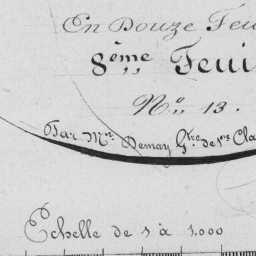 En Douze Feu
8ème Feui
No 13.
Par Mr. Demay Gtre de 1re Cla
Echelle de 1 à 1.000